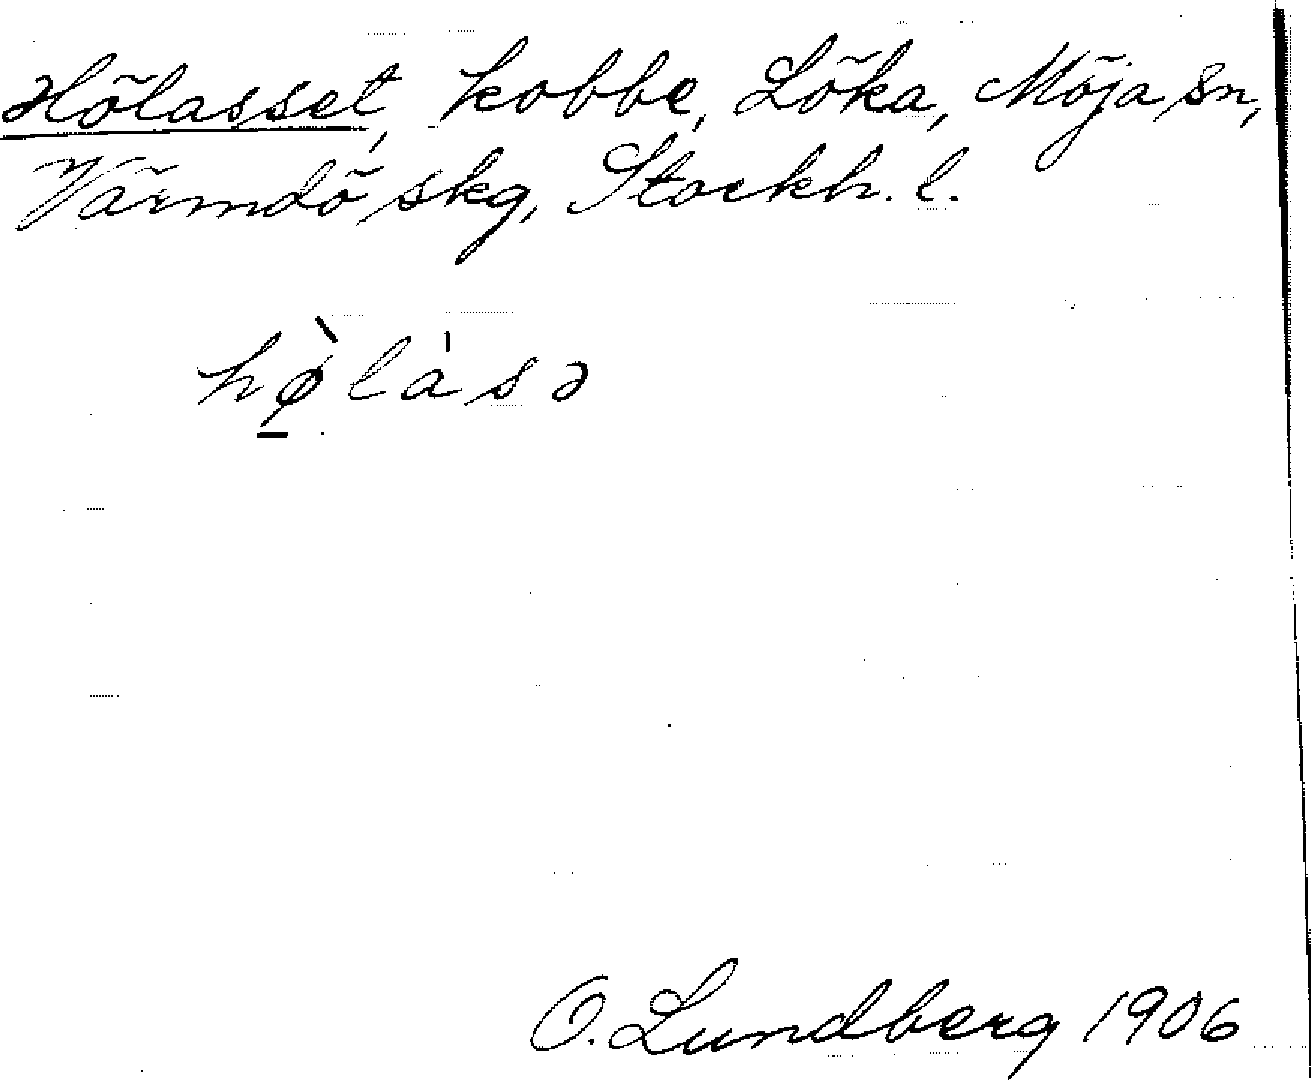 Hölasset, kobbe, Löka, Möja sn,
Värmdö skg, Stockh. l.
hø̠̀lásə
O. Lundberg 1906